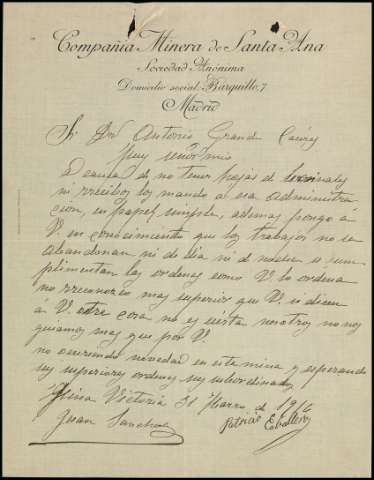 Compañia Minera de Santa Ana
Sociedad Anónima
Domicilio social: Barquillo, 7
Madrid
Sr Dn Antonio Grand
Muy señor mio
A causa de no tener ojas de
ni recibos los mando a esa administra
ción, en papel simple, ademas pongo á
V. en conocimiento que los trabajos no se
abandonan ni de dia ni de noche se cum
plimentan las ordenes como V lo ordena
no reconozco mas superior que V. si dicen
á V. otra cosa no es cierta nosotros no nos
guiamos mas que por V.
no ocurriendo novedad en esta mina y esperando
sus superiores ordenes sus subordinados
Mina Victoria 31 Marzo de 1916
Juan Sanchez
Patricio Caballero